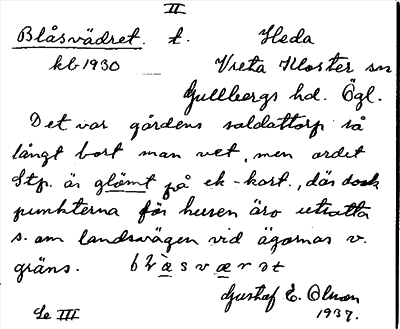 II
Blåsvädret. t. Heda
kb 1930 Vreta Kloster sn
Gullbergs hd. Ögl.
Det var gårdens soldattorp så
långt bort man vet, men ordet
Stp. är glömt på ek-kart., där dock
punkterna för husen äro utsatta
s. om landsvägen vid ägornas v.
gräns.
Gustaf E. Olsson
Se III 1937.